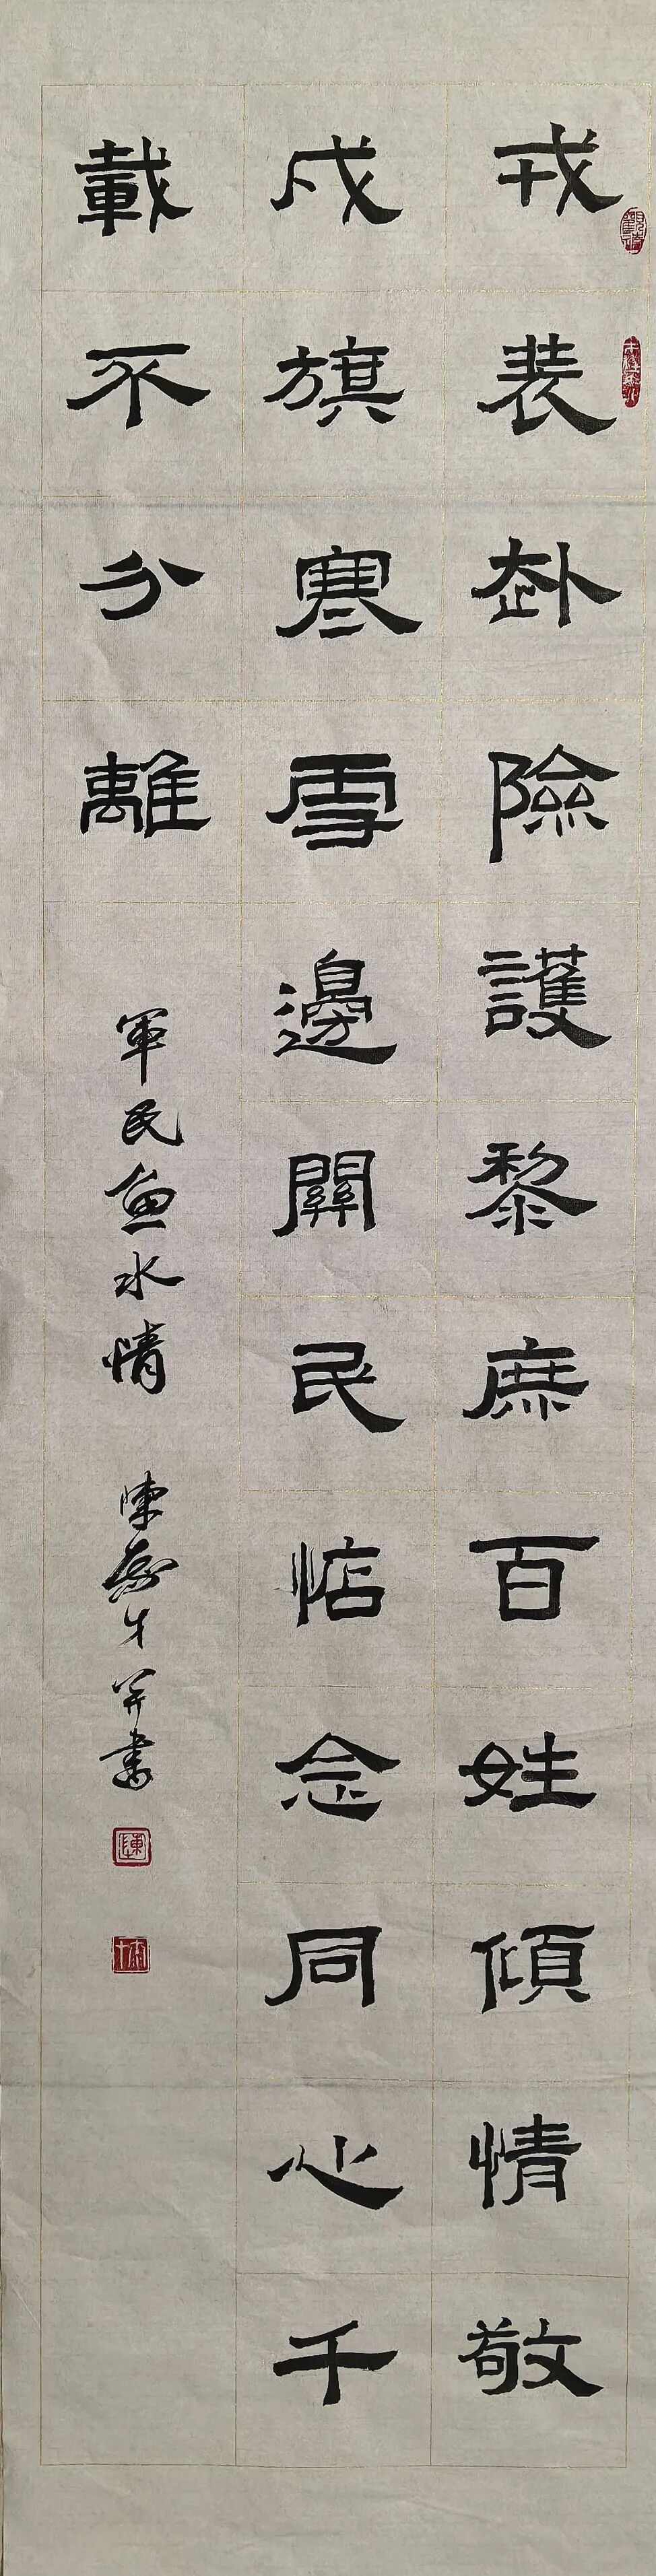 戎装赴險護黎庶百姓傾情敬
戍旗寒雪邊關民惦念同心千
載不分離
軍民魚水情
陳 才并書
陳